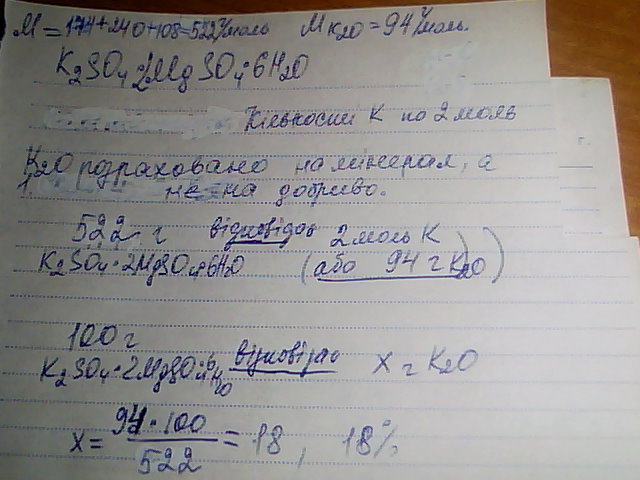 M = 174+240+108=522 г/моль M K₂O = 94 г/моль.
K₂SO₄·2MgSO₄·6H₂O
Кількости K по 2 моль
K₂O розраховано на мінерал, а
не на добриво.
522 г відповідає 2 моль K
K₂SO₄·2MgSO₄·6H₂O (або 94 г K₂O)
100 г
K₂SO₄·2MgSO₄·6H₂O відповідає x г K₂O
x = 94·100 / 522 = 18, 18%